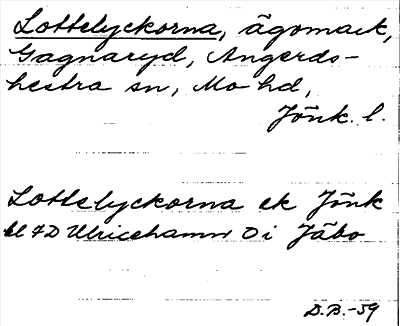 Lottelyckorna, ägomark,
Gagnaryd, Angerds-
hestra sn, Mo hd,
Jönk. l.
Lottelyckorna ek Jönk
bl 7D Ulricehamn Oi Jäbo
D.B.-59